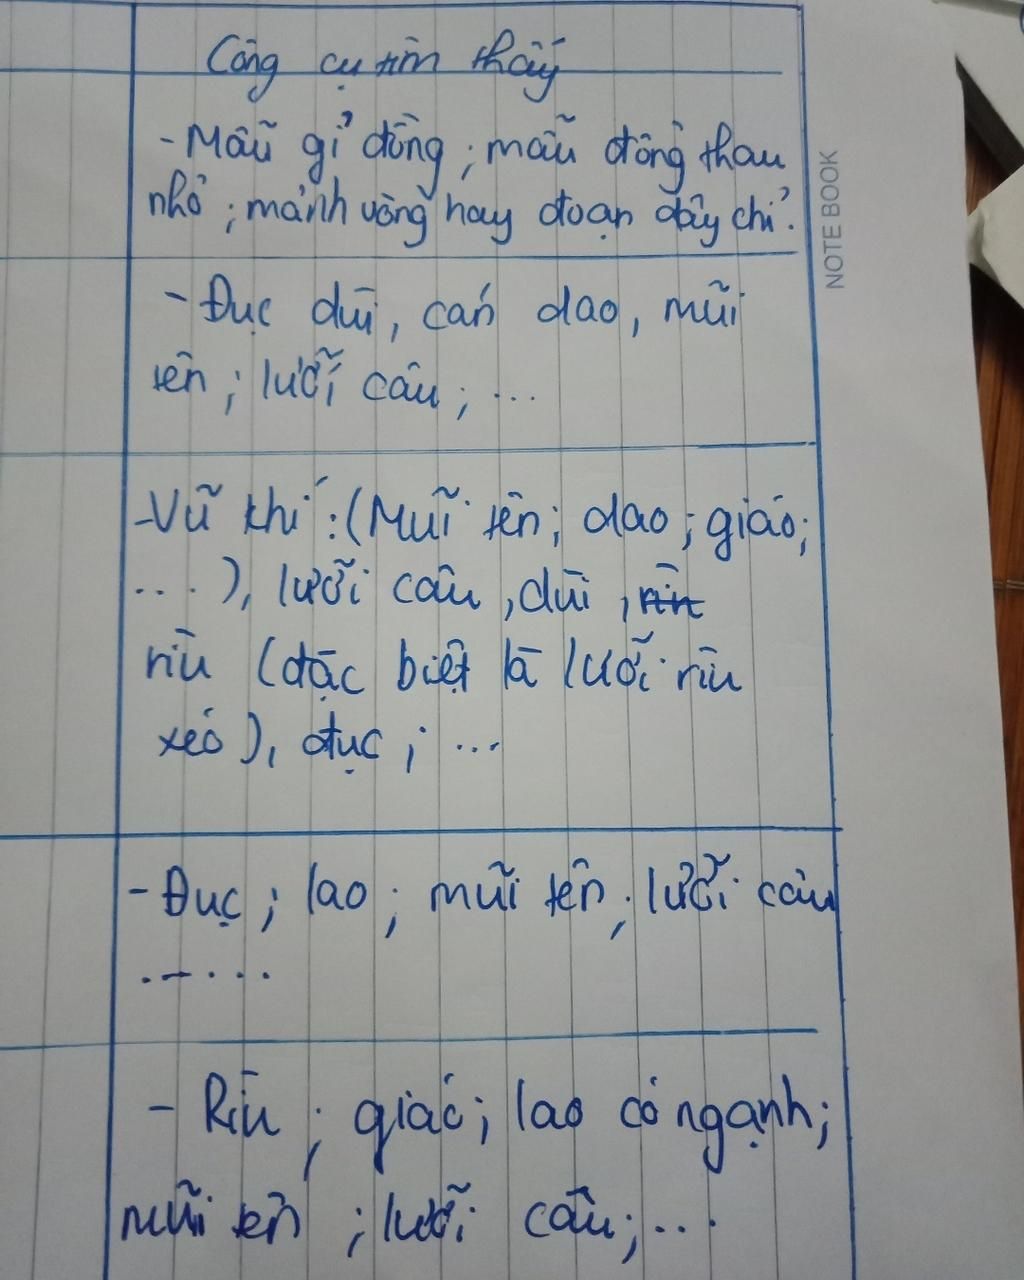 Công cụ tìm thấy
- Mẫu gỉ đồng ; mẫu đồng thau
nhỏ ; mảnh vòng hay đoạn dây chỉ.
NOTE BOOK
- Đục dùi, cán dao, mũi
tên ; lưỡi câu ; ...
- Vũ khí : (Mũi tên ; dao ; giáo ;
...), lưỡi câu , dùi ,
rìu (đặc biệt là lưỡi rìu
xéo), đục ; ...
- Đục ; lao ; mũi tên ; lưỡi câu
.....
- Rìu ; giáo ; lao có ngạnh ;
mũi tên ; lưỡi câu ; ...